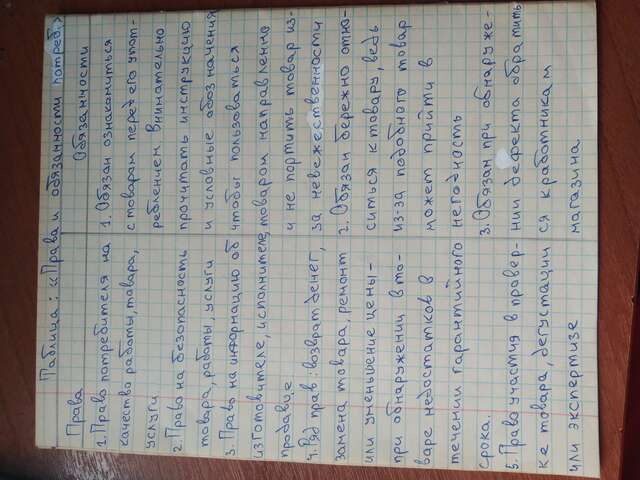 Таблица: «Права и обязанности потреб.»
Права
1. Право потребителя на
качество работы, товара,
услуги
2. Право на безопасность
товара, работы, услуги
3. Право на информацию об
изготовителе, исполнителе,
продавце
4. Ряд прав: возврат денег,
замена товара, ремонт
или уменьшение цены -
при обнаружении в то-
варе недостатков в
течении гарантийного
срока.
5. Право участия в провер-
ке товара, дегустации
или экспертизе
Обязанности
1. Обязан ознакомиться
с товаром перед его упот-
реблением внимательно
прочитать инструкцию
и условные обозначения
чтобы пользоваться
товаром направленно
и не портить товар из-
за невежественности
2. Обязан бережно отно-
ситься к товару, ведь
из-за подобного товар
может прийти в
негодность
3. Обязан при обнаруже-
нии дефекта обратить
ся к работникам
магазина